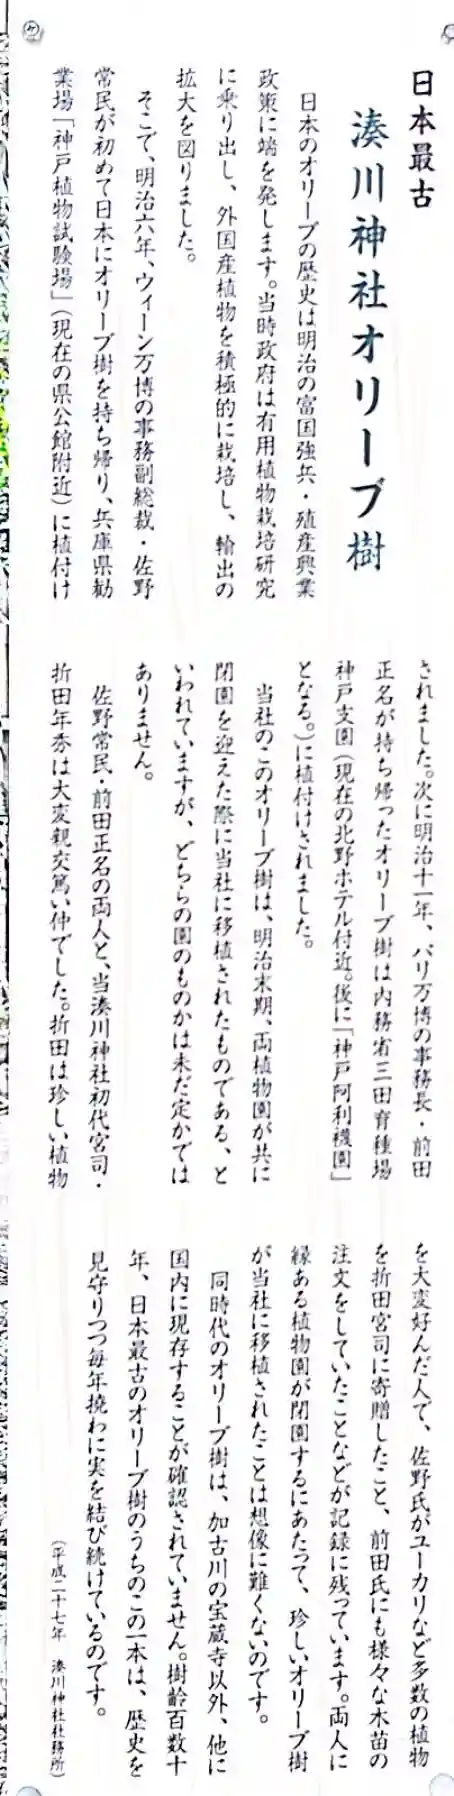 日本最古
湊川神社オリーブ樹
日本のオリーブの歴史は明治の富国強兵・殖産興業
政策に端を発します。当時政府は有用植物栽培研究
に乗り出し、外国産植物を積極的に栽培し、輸出の
拡大を図りました。
そこで、明治六年、ウィーン万博の事務副総裁・佐野
常民が初めて日本にオリーブ樹を持ち帰り、兵庫県勧
業場「神戸植物試験場」（現在の県公館附近）に植付け
されました。次に明治十一年、パリ万博の事務長・前田
正名が持ち帰ったオリーブ樹は内務省三田育種場
神戸支園（現在の北野ホテル付近。後に「神戸阿利襪園」
となる。）に植付けされました。
当社のこのオリーブ樹は、明治末期、両植物園が共に
閉園を迎えた際に当社に移植されたものである、と
いわれていますが、どちらの園のものかは未だ定かでは
ありません。
佐野常民・前田正名の両人と、当湊川神社初代宮司・
折田年秀は大変親交篤い仲でした。折田は珍しい植物
を大変好んだ人で、佐野氏がユーカリなど多数の植物
を折田宮司に寄贈したこと、前田氏にも様々な木苗の
注文をしていたことなどが記録に残っています。両人に
縁ある植物園が閉園するにあたって、珍しいオリーブ樹
が当社に移植されたことは想像に難くないのです。
同時代のオリーブ樹は、加古川の宝蔵寺以外、他に
国内に現存することが確認されていません。樹齢百数十
年、日本最古のオリーブ樹のうちのこの一本は、歴史を
見守りつつ毎年撓わに実を結び続けているのです。
（平成二十七年 湊川神社社務所）